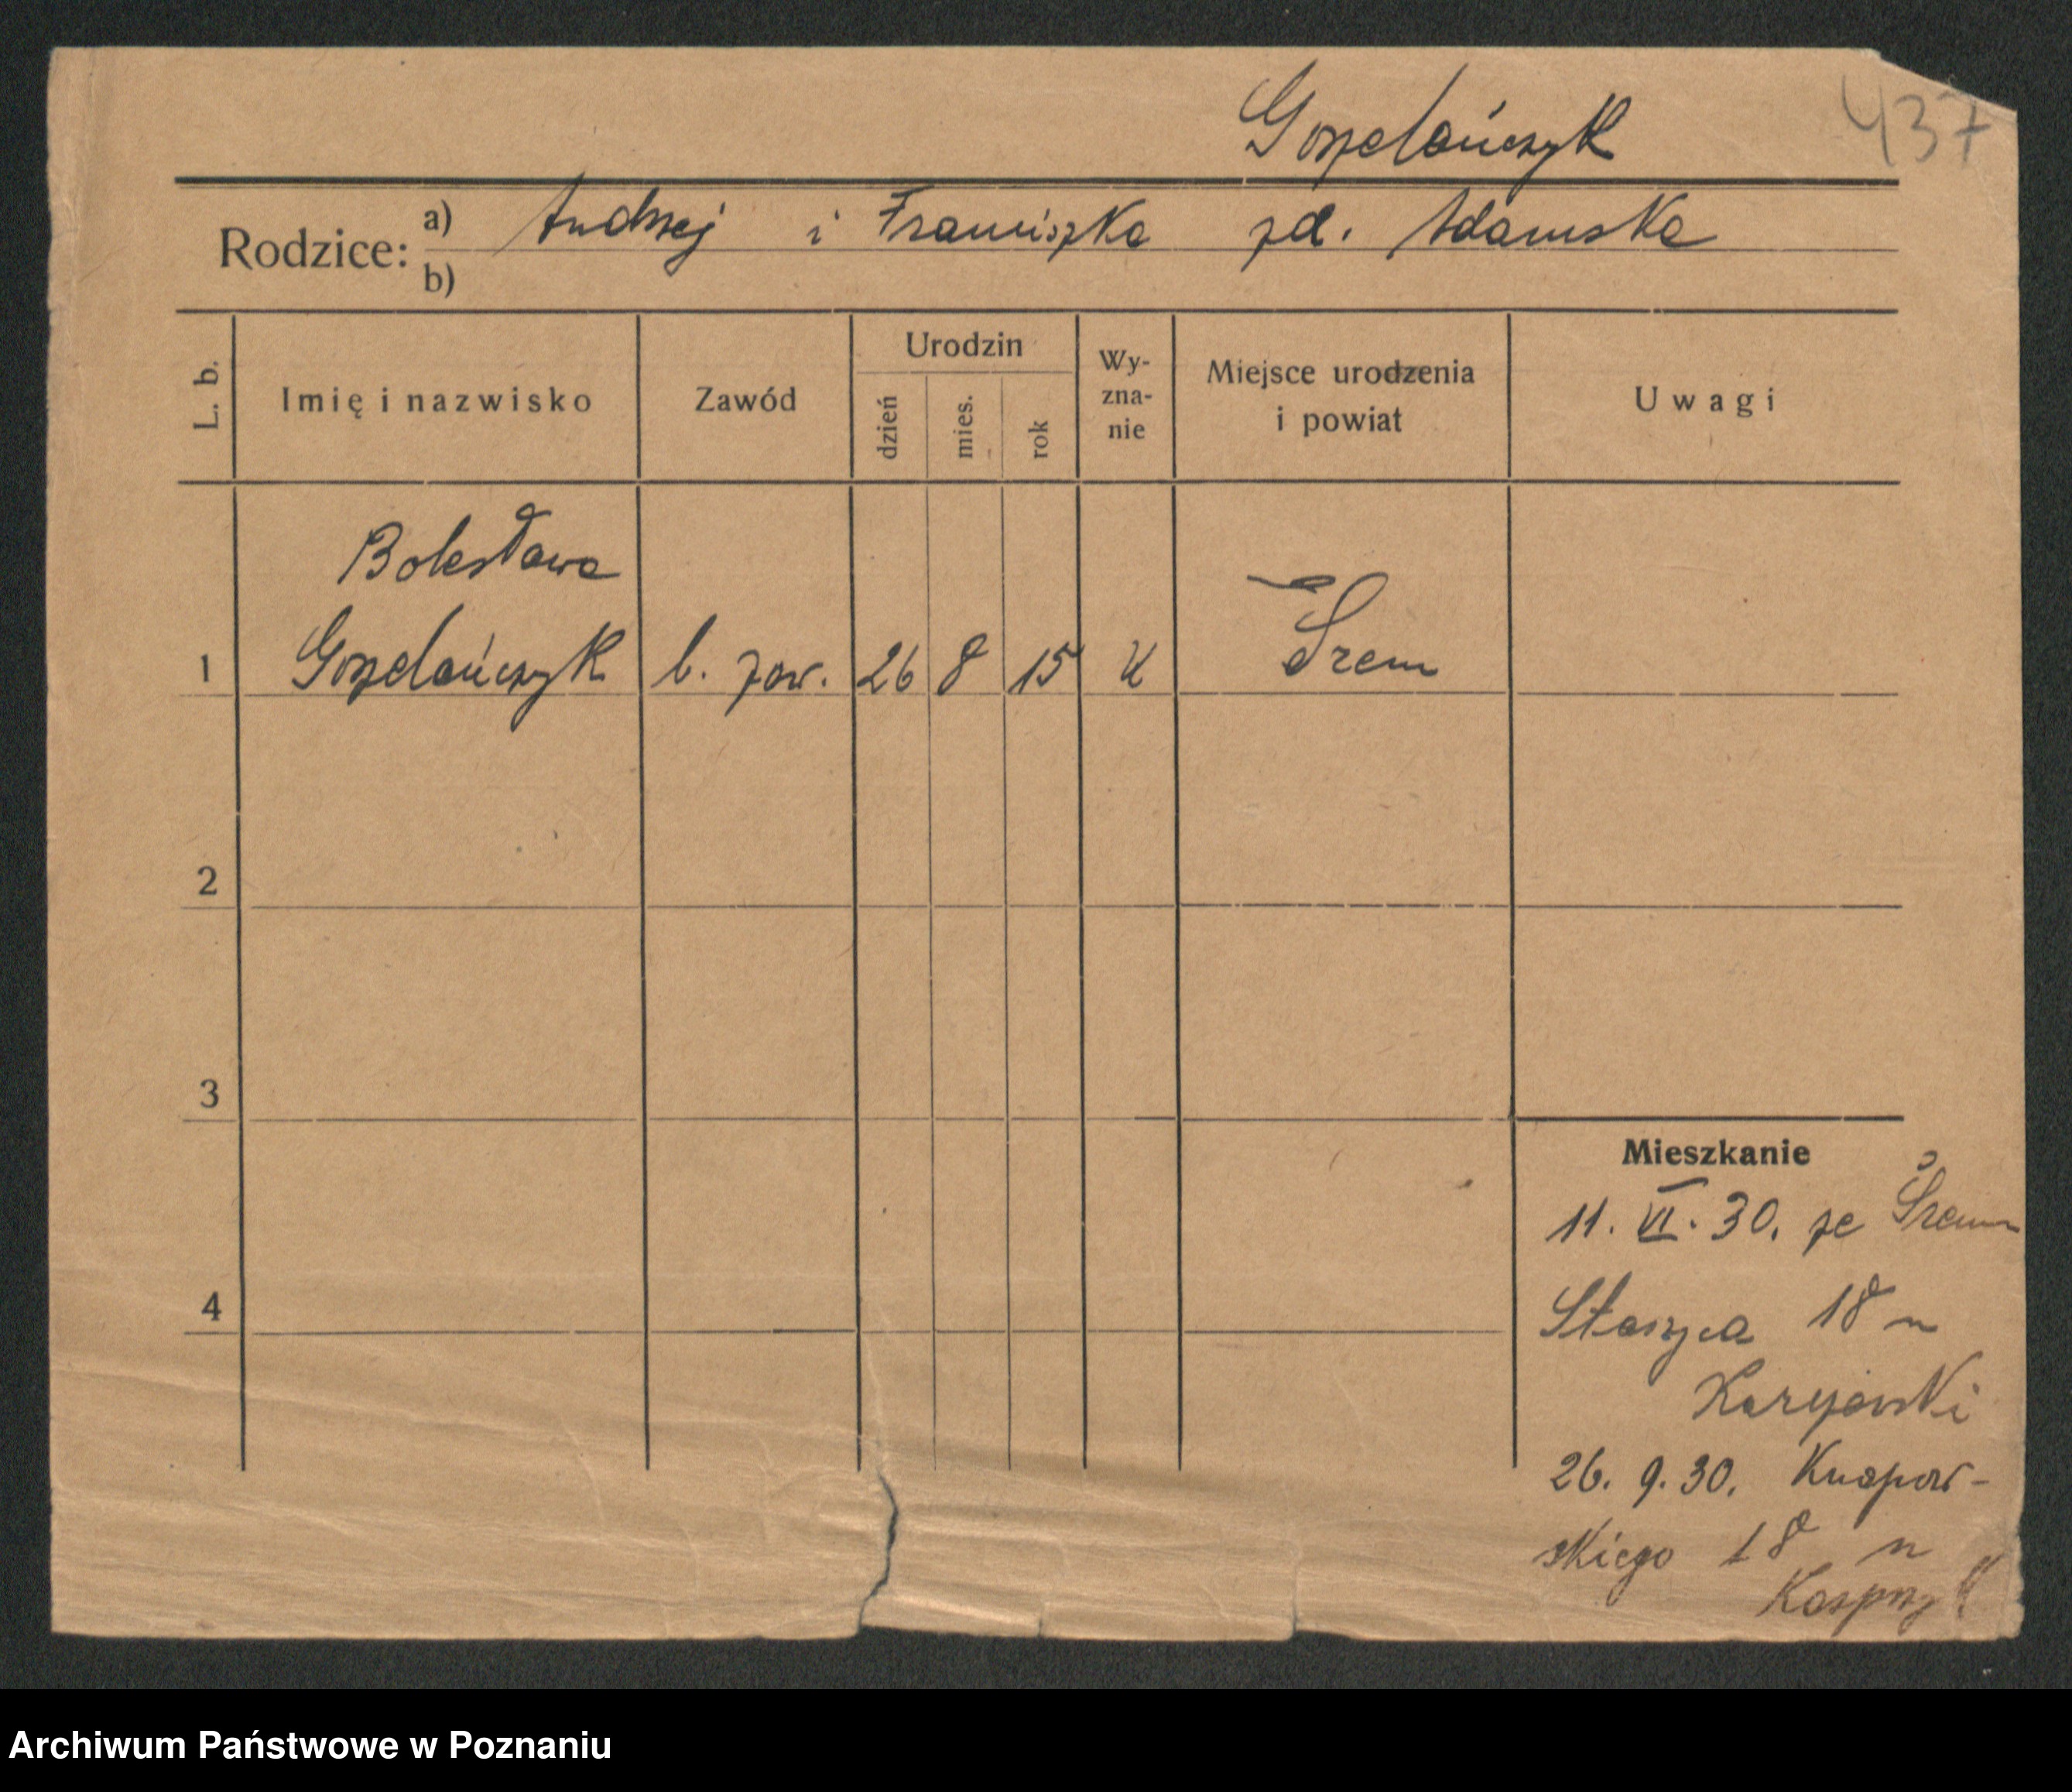 Gozelańczyk 437
Rodzice: a) Andrzej i Franciszka zd. Adamska
b)
L. b. Imię i nazwisko Zawód Urodzin dzień mies. rok Wy-zna-nie Miejsce urodzenia i powiat Uwagi
Bolesława
1 Gozelańczyk b. zaw. 26 8 15 K Śrem
2
3
4
Mieszkanie
11. VI. 30. ze Śrem
Staszyca 18 n
26. 9. 30. Knapow-
skiego 18 n
Kasprzyk
Archiwum Państwowe w Poznaniu